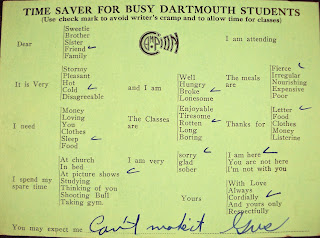 TIME SAVER FOR BUSY DARTMOUTH STUDENTS
(Use check mark to avoid writer's cramp and to allow time for classes)
Dear
Sweetie
Brother
Sister
Friend ✓
Family
CAMPION
I am attending
It is Very
Stormy
Pleasant
Hot
Cold ✓
Disagreeable
and I am
Well
Hungry
Broke ✓
Lonesome
The meals
are
Fierce ✓
Irregular
Nourishing
Expensive
Poor
I need
Money
Loving
You
Clothes
Sleep ✓
Food
The Classes
are
Enjoyable
Tiresome
Rotten ✓
Long
Boring
Thanks for
Letter ✓
Food
Clothes
Money
Listerine
I spend my
spare time
At church
In bed
At picture shows ✓
Studying
Thinking of you
Shooting Bull
Taking gym.
I am very
sorry ✓
glad
sober
I am here ✓
You are not here
I'm not with you
Yours
With Love
Always
Cordially ✓
And yours only
Respectfully
You may expect me Can't make it Gus